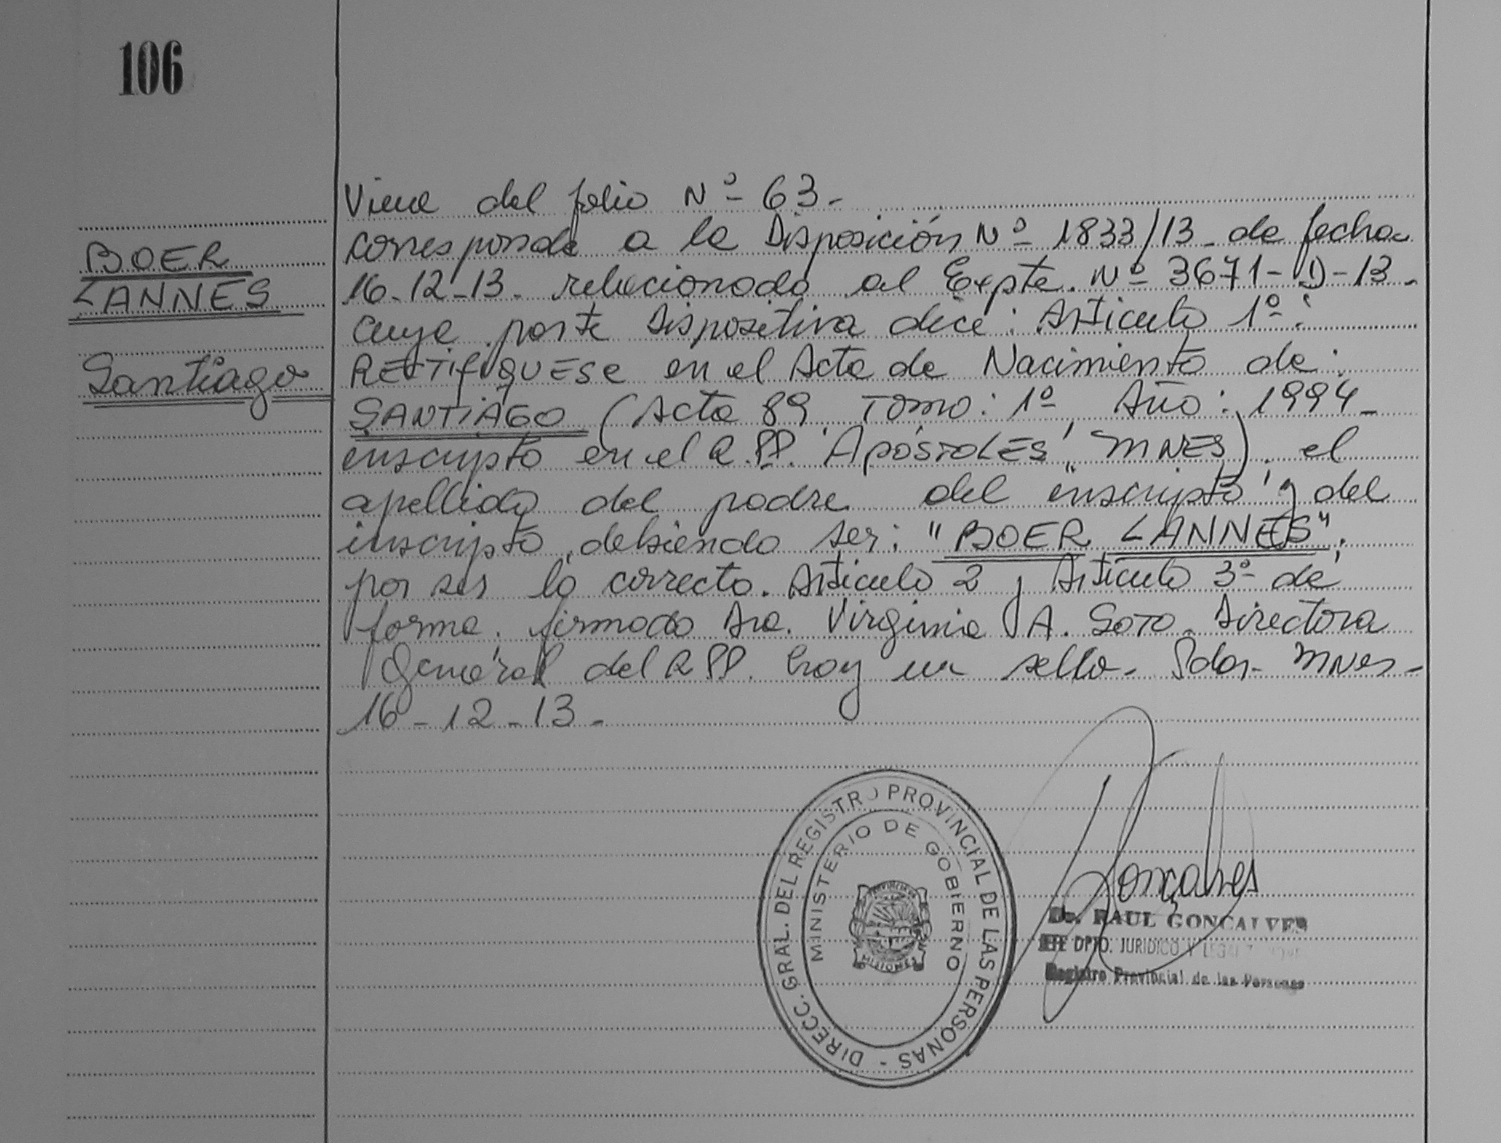 106
BOER
LANNES
Santiago
Viene del folio Nº 63.-
corresponde a la Disposición Nº 1833/13 de fecha
16-12-13. relacionado al Expte. Nº 3671-D-13-
cuya parte dispositiva dice: Articulo 1º:
RECTIFIQUESE en el Acta de Nacimiento de:
SANTIAGO (Acta 89 Tomo: 1º Año: 1994-
inscripto en el R.PP. "APÓSTOLES", MNES) el
apellido del padre del inscripto y del
inscripto, debiendo ser: "BOER LANNES";
por ser lo correcto. Articulo 2 y Articulo 3º de
forma. firmado Dra. Virginia A. Soto. Directora
General del RPP. hay un sello. Pdas- MNes-
16-12-13.-
DIRECC. GRAL. DEL REGISTRO PROVINCIAL DE LAS PERSONAS -
MINISTERIO DE GOBIERNO
MISIONES
Goncalves
Dr. RAUL GONCALVES
DPTO. JURIDICO Y
Registro Provincial de las Personas